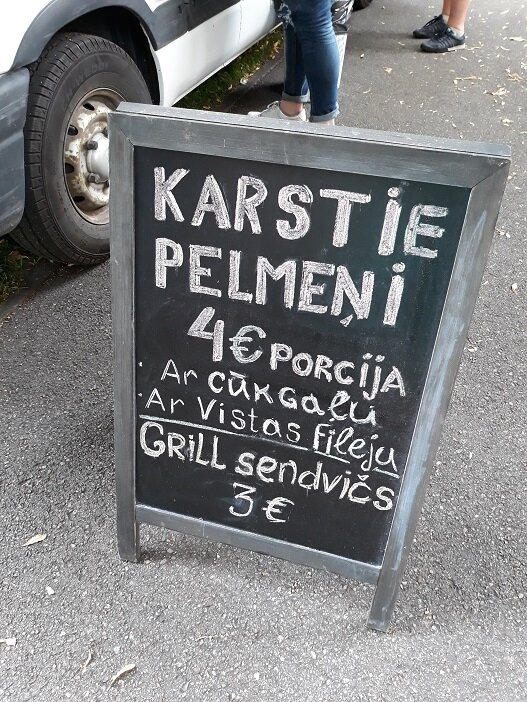 KARSTIE
PELMEŅI
4€ PORCIJA
Ar CŪKGAĻU
Ar Vistas Fileju
GRiLL sendvičs
3 €